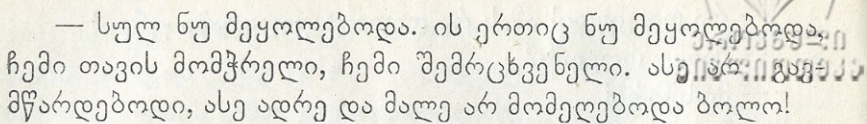 — სულ ნუ მეყოლებოდა. ის ერთიც ნუ მეყოლებოდა,
ჩემი თავის მომჭრელი, ჩემი შემრცხვენელი. ასე არ გავ-
მწარდებოდი, ასე ადრე და მალე არ მომეღებოდა ბოლო!